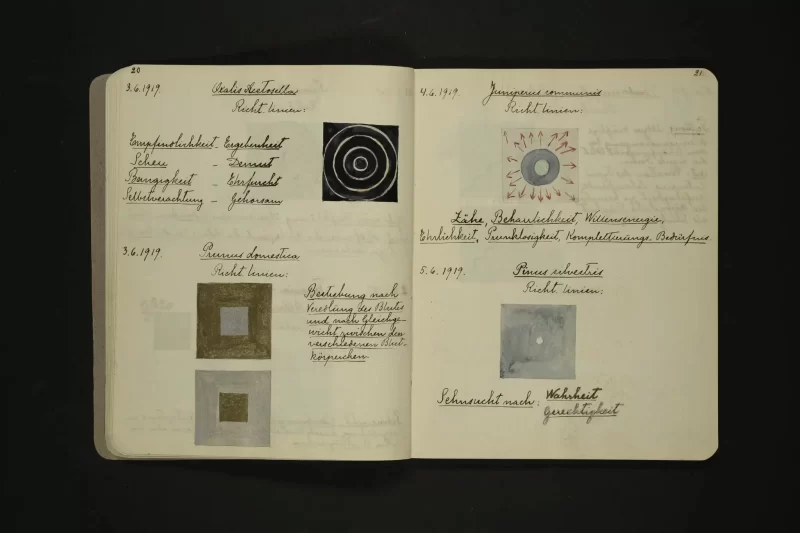 20
3.6.1919. Oxalis Acetosella
Richt linien:
Empfindlichkeit - Ergebenheit
Scheu - Demut
Bangigkeit - Ehrfurcht
Selbstverachtung - Gehorsam
3.6.1919. Prunus domestica
Richt linien:
Bestrebung nach
Veredlung des Blutes
und nach Gleichge-
wicht zwischen den
verschiedenen Blut-
körperchen.
21.
4.6.1919. Juniperus communis
Richt linien:
Zähe, Beharrlichkeit, Willensenergie,
Ehrlichkeit, Prunklosigkeit, Komplettierungs. Bedürfnis.
5.6.1919. Pinus silvestris
Richt. linien:
Sehnsucht nach: Wahrheit
Gerechtigkeit